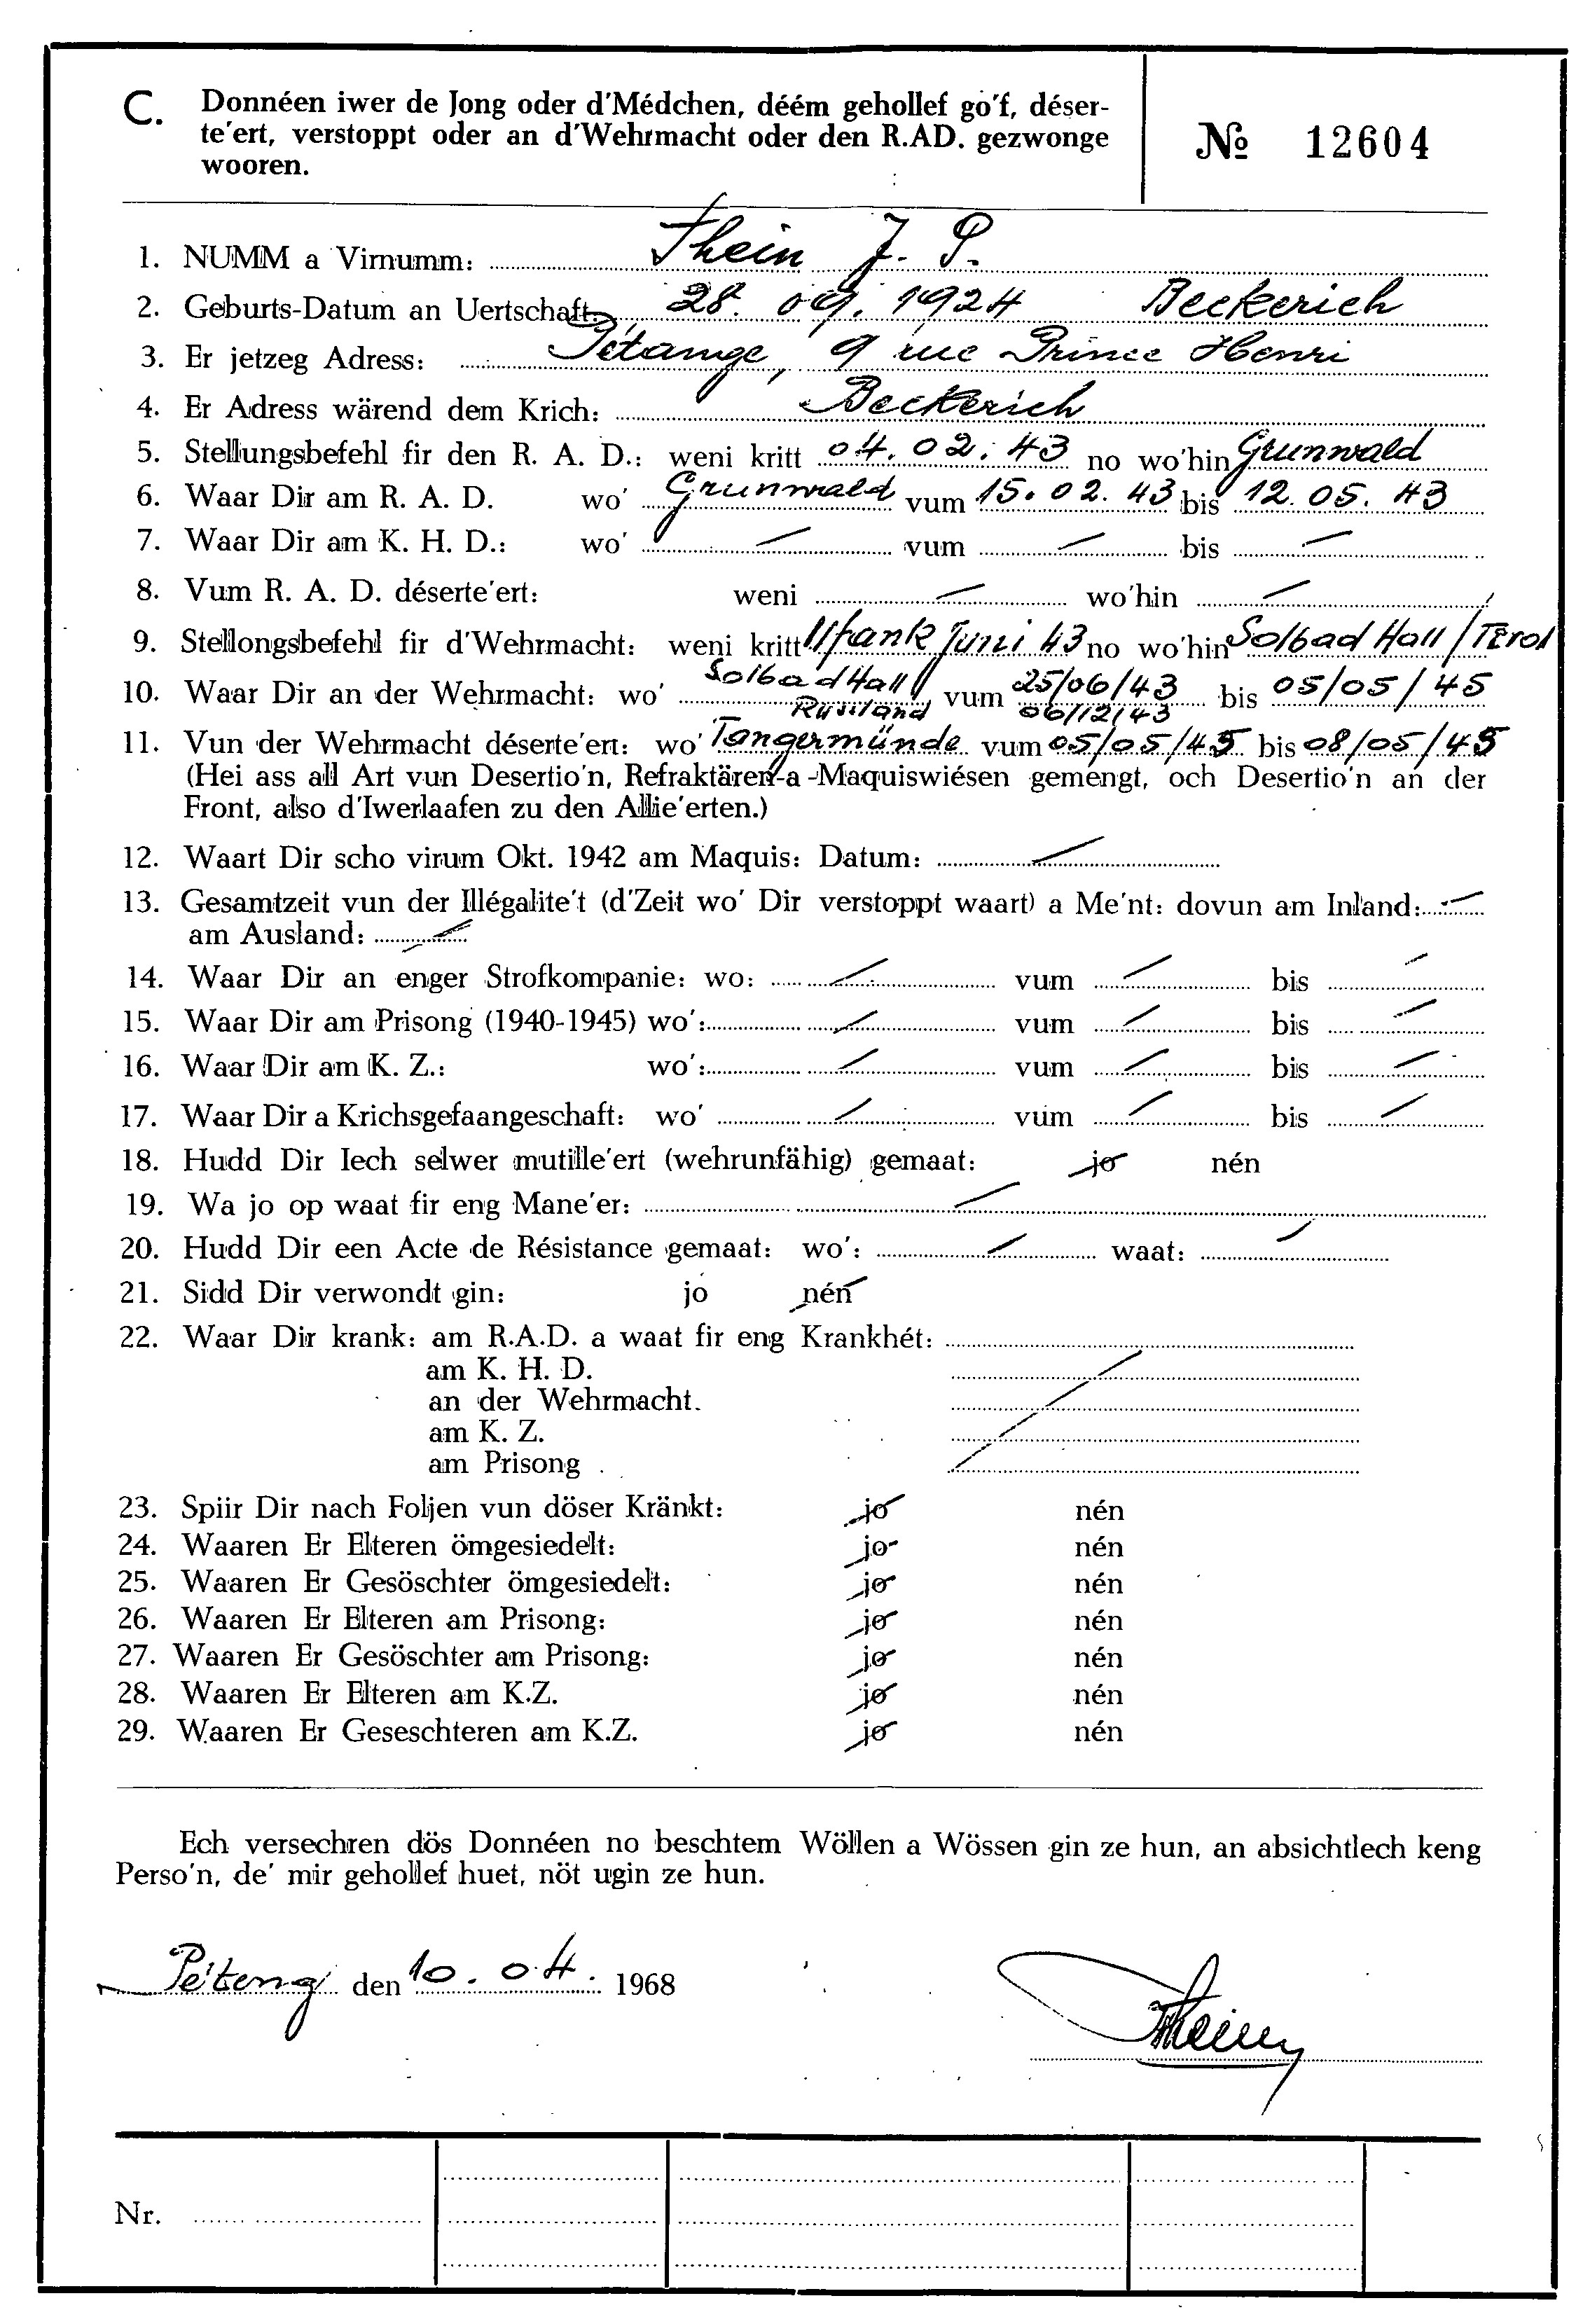 C. Donnéen iwer de Jong oder d'Médchen, déém gehollef go'f, déser-
te'ert, verstoppt oder an d'Wehrmacht oder den R.AD. gezwonge
wooren.
№ 12604
1. NUMM a Virnumm: Thein J. P.
2. Geburts-Datum an Uertschaft: 28. 09. 1924 Beckerich
3. Er jetzeg Adress: Pétange, 9 rue Prince Henri
4. Er Adress wärend dem Krich: Beckerich
5. Stellungsbefehl fir den R. A. D.: weni kritt 04. 02. 43 no wo'hin Grunwald
6. Waar Dir am R. A. D. wo' Grunwald vum 15. 02. 43 bis 12. 05. 43
7. Waar Dir am K. H. D.: wo' vum bis
8. Vum R. A. D. déserte'ert: weni wo'hin
9. Stellongsbefehl fir d'Wehrmacht: weni kritt Ufank Juni 43 no wo'hin Solbad Hall / Tirol
10. Waar Dir an der Wehrmacht: wo' Solbad Hall vum 25/06/43 bis 05/05/45
Russland 06/12/43
11. Vun der Wehrmacht déserte'ert: wo' Tangermünde vum 05/05/45 bis 08/05/45
(Hei ass all Art vun Desertio'n, Refraktären-a -Maquiswiésen gemengt, och Desertio'n an der
Front, also d'Iwerlaafen zu den Allie'erten.)
12. Waart Dir scho virum Okt. 1942 am Maquis: Datum:
13. Gesamtzeit vun der Illégalite't (d'Zeit wo' Dir verstoppt waart) a Me'nt: dovun am Inland:
am Ausland:
14. Waar Dir an enger Strofkompanie: wo: vum bis
15. Waar Dir am Prisong (1940-1945) wo': vum bis
16. Waar Dir am K. Z.: wo': vum bis
17. Waar Dir a Krichsgefaangeschaft: wo' vum bis
18. Hudd Dir Iech selwer mutille'ert (wehrunfähig) gemaat: jo nén
19. Wa jo op waat fir eng Mane'er:
20. Hudd Dir een Acte de Résistance gemaat: wo': waat:
21. Sidd Dir verwondt gin: jo nén
22. Waar Dir krank: am R.A.D. a waat fir eng Krankhét:
am K. H. D.
an der Wehrmacht.
am K. Z.
am Prisong
23. Spiir Dir nach Foljen vun döser Kränkt: jo nén
24. Waaren Er Elteren ömgesiedelt: jo nén
25. Waaren Er Gesöschter ömgesiedelt: jo nén
26. Waaren Er Elteren am Prisong: jo nén
27. Waaren Er Gesöschter am Prisong: jo nén
28. Waaren Er Elteren am K.Z. jo nén
29. Waaren Er Geseschteren am K.Z. jo nén
Ech versechren dös Donnéen no beschtem Wöllen a Wössen gin ze hun, an absichtlech keng
Perso'n, de' mir gehollef huet, nöt ugin ze hun.
Péteng den 10. 04. 1968
Thein
Nr.